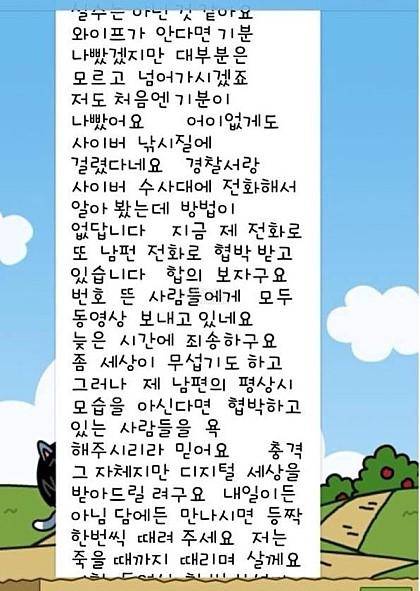 실수는 아닌 것 같아요
와이프가 안다면 기분
나빴겠지만 대부분은
모르고 넘어가시겠죠
저도 처음엔 기분이
나빴어요 어이없게도
사이버 낚시질에
걸렸다네요 경찰서랑
사이버 수사대에 전화해서
알아 봤는데 방법이
없답니다 지금 제 전화로
또 남편 전화로 협박 받고
있습니다 합의 보자구요
번호 뜬 사람들에게 모두
동영상 보내고 있네요
늦은 시간에 죄송하구요
좀 세상이 무섭기도 하고
그러나 제 남편의 평상시
모습을 아신다면 협박하고
있는 사람들을 욕
해주시리라 믿어요 충격
그 자체지만 디지털 세상을
받아드릴 려구요 내일이든
아님 담에든 만나시면 등짝
한번씩 때려 주세요 저는
죽을 때까지 때리며 살께요